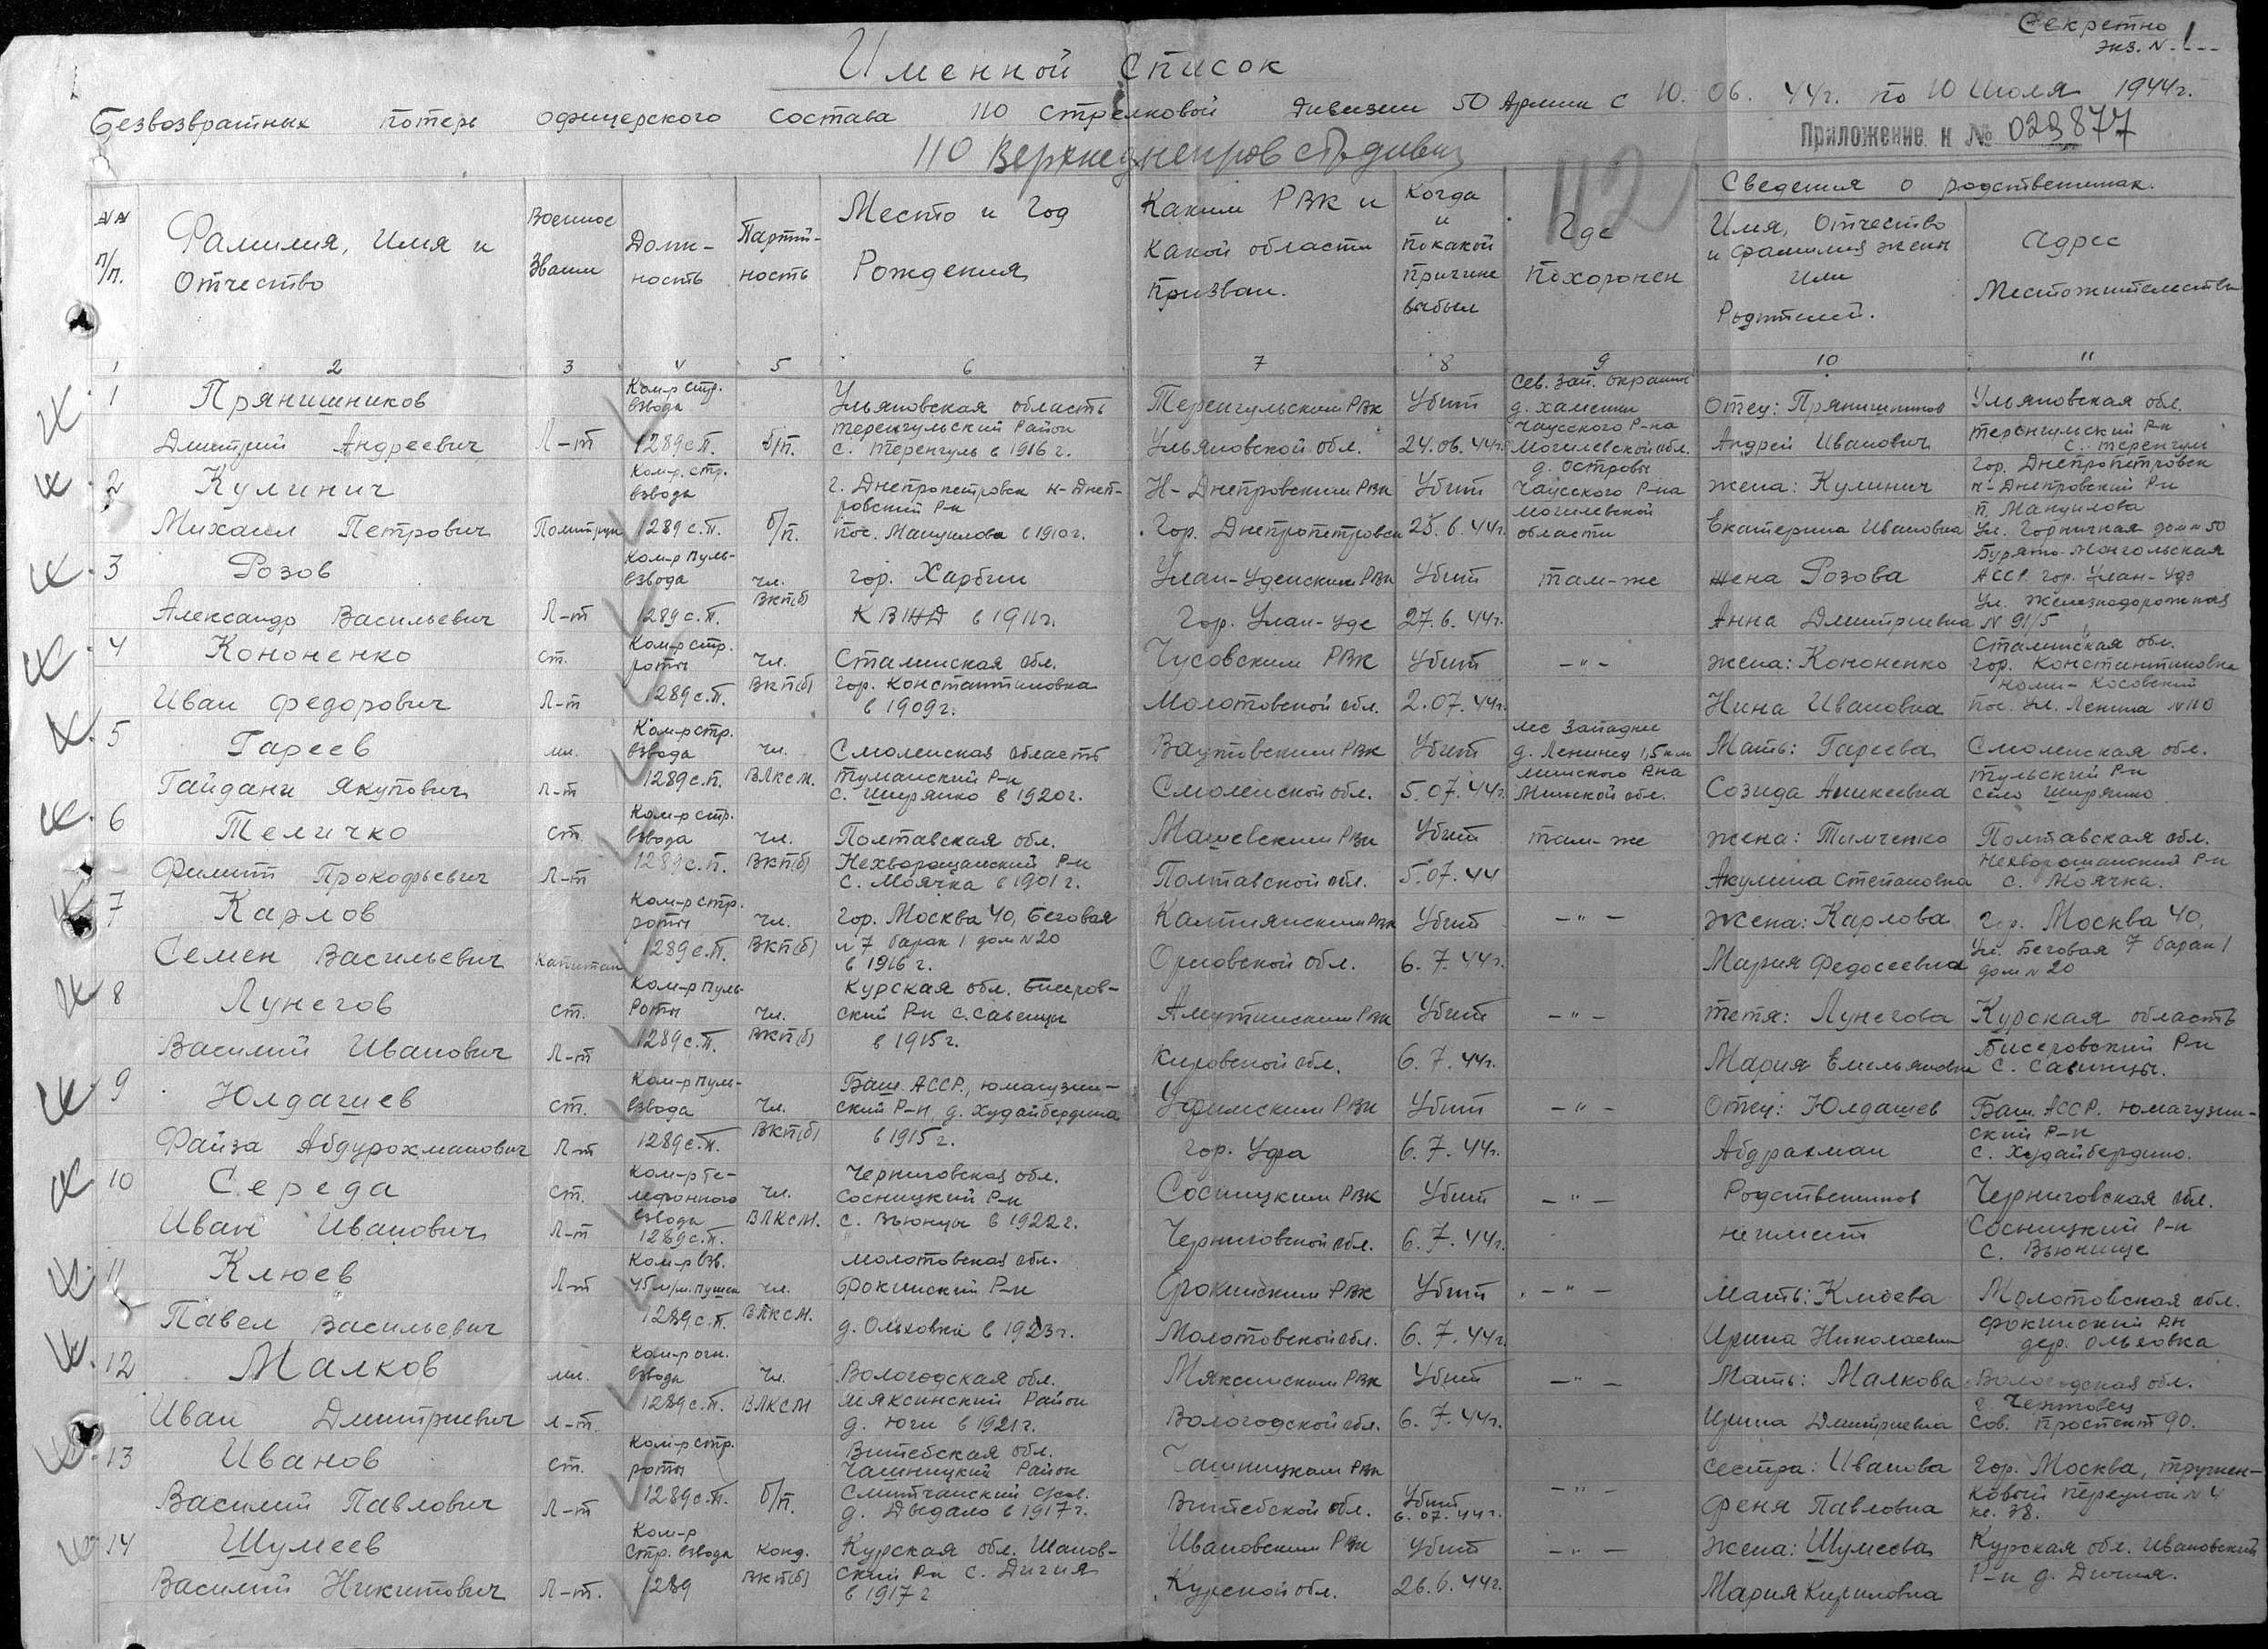 Секретно
экз. N 1
Именной список
Безвозвратных потерь офицерского состава 110 стрелковой дивизии 50 Армии с 10. 06. 44г. по 10 июля 1944г.
Приложение к № 029877
110 Верхнеднепров стр. дивиз
112
Сведения о родственниках.
NN п/п.
Фамилия, Имя и Отчество
Военное звание
Долж-ность
Партий-ность
Место и Год Рождения
Каким РВК и какой области призван.
Когда и по какой причине выбыл
Где похоронен
Имя, Отчество и фамилия жены или Родителей.
Адрес Местожительства
1 2 3 4 5 6 7 8 9 10 11
1 Прянишников Ком-р стр. взвода Ульяновская область Теренгульским РВК Убит Сев. зап. окраина д. Хаменки Отец: Прянишников Ульяновская обл.
Дмитрий Андреевич Л-т 1289 с.п. б/п. Теренгульский Район с. Теренгуль в 1916 г. Ульяновской обл. 24.06.44г. Чаусского Р-на Могилевской обл. Андрей Иванович Теренгульский Р-н с. Теренгул
2 Кулинич Ком-р. стр. взвода г. Днепропетровск Н-Днеп-ровский Р-н Н-Днепровским РВК Убит д. Островы Чаусского Р-на жена: Кулинич Гор. Днепропетровск Н-Днепровский Р-н
Михаил Петрович Политрук 1289 с.п. б/п. пос. Мануилова в 1910 г. Гор. Днепропетровск 25.6.44г. Могилевской области Екатерина Ивановна п. Мануилова ул. Горничная дом N 50
3 Розов Ком-р пуль-взвода чл. гор. Харбин Улан-Удэнским РВК Убит там-же жена Розова Бурято-Монгольская АССР. гор. Улан-Удэ
Александр Васильевич Л-т 1289 с.п. ВКП(б) КВЖД в 1911г. Гор. Улан-Удэ 27.6.44г. Анна Дмитриевна ул. Железнодорожная N 91/5
4 Кононенко ст. Ком-р стр. роты чл. Сталинская обл. Чусовским РВК Убит -"- жена: Кононенко Сталинская обл. гор. Константиновка
Иван Федорович Л-т 1289 с.п. ВКП(б) гор. Константиновка в 1909г. Молотовской обл. 2.07.44г. Нина Ивановна пос. ул. Ленина N 110
5 Гареев мл. Ком-р стр. взвода чл. Смоленская область Убит лес Западнее д. Ленинец 1,5 км Мать: Гареева Смоленская обл.
Гайдани Якупович Л-т 1289 с.п. ВЛКСМ. Туманский Р-н с. Ширянко в 1920г. Смоленской обл. 5.07.44г. Минского Р-на Минской обл. Созида Аникеевна Тульский Р-н село Ширянко
6 Теличко ст. Ком-р стр. взвода чл. Полтавская обл. Машевским РВК Убит там-же жена: Тимченко Полтавская обл.
Филипп Прокофьевич Л-т 1289 с.п. ВКП(б) Нехворощанский Р-н с. Моячка в 1901 г. Полтавской обл. 5.07.44 Акулина Степановна Нехворощанский Р-н с. Моячка.
7 Карлов Ком-р стр. роты чл. гор. Москва 40, Беговая Убит -"- жена: Карлова гор. Москва 40,
Семен Васильевич Капитан 1289 с.п. ВКП(б) 7 барак 1 дом N 20 в 1916 г. Орловской обл. 6.7.44г. Мария Федосеевна ул. Беговая 7 барак 1 дом N 20
8 Лунегов ст. Ком-р пуль-роты чл. Курская обл. Бисеров-ский Р-н с. Савинцы Омутнинским РВК Убит -"- тетя: Лунегова Курская область
Василий Иванович Л-т 1289 с.п. ВКП(б) в 1915г. Кировской обл. 6.7.44г. Мария Емельяновна Бисеровский Р-н с. Савинцы.
9 Юлдашев ст. Ком-р пуль-взвода чл. Баш. АССР., Юмагузин-ский Р-н, д. Худайбердина Уфимским РВК Убит -"- Отец: Юлдашев Баш. АССР. Юмагузин-ский Р-н
Файза Абдурохманович Л-т 1289 с.п. ВКП(б) в 1915г. гор. Уфа 6.7.44г. Абдрахман с. Худайбердино.
10 Середа ст. Ком-р те-лефонного взвода чл. Черниговская обл. Сосницкий Р-н Сосницким РВК Убит -"- Родственников Черниговская обл.
Иван Иванович Л-т 1289 с.п. ВЛКСМ. с. Вьюнцы в 1922г. Черниговской обл. 6.7.44г. не имеет Сосницкий Р-н с. Вьюнище
11 Клюев Л-т Ком-р взв. 45 м/м. пушек чл. Молотовская обл. Фокинский Р-н Фокинским РВК Убит -"- Мать: Клюева Молотовская обл.
Павел Васильевич 1289 с.п. ВЛКСМ. д. Ольховка в 1923г. Молотовской обл. 6.7.44г. Ирина Николаевна Фокинский Р-н дер. Ольховка
12 Малков мл. Ком-р огн. взвода чл. Вологодская обл. Мяксинским РВК Убит -"- Мать: Малкова Вологодская обл.
Иван Дмитриевич Л-т. 1289 с.п. ВЛКСМ Мяксинский Район д. Юги в 1921г. Вологодской обл. 6.7.44г. Ирина Дмитриевна г. Череповец Сов. Проспект 90.
13 Иванов ст. Ком-р стр. роты Витебская обл. Чашницкий Район Чашницким РВК сестра: Иванова гор. Москва, тружен-
Василий Павлович Л-т 1289 с.п. б/п. с/сов. д. Дведало в 1917г. Витебской обл. Убит 6.07.44г. -"- Феня Павловна ковый переулок N 4 кв. 38.
14 Шумеев Ком-р стр. взвода канд. Курская обл. Иванов-ский Р-н с. Дичня Ивановским РВК Убит -"- жена: Шумеева Курская обл. Ивановский
Василий Никитович Л-т. 1289 ВКП(б) в 1917г Курской обл. 26.6.44г. Мария Кириловна Р-н д. Дичня.